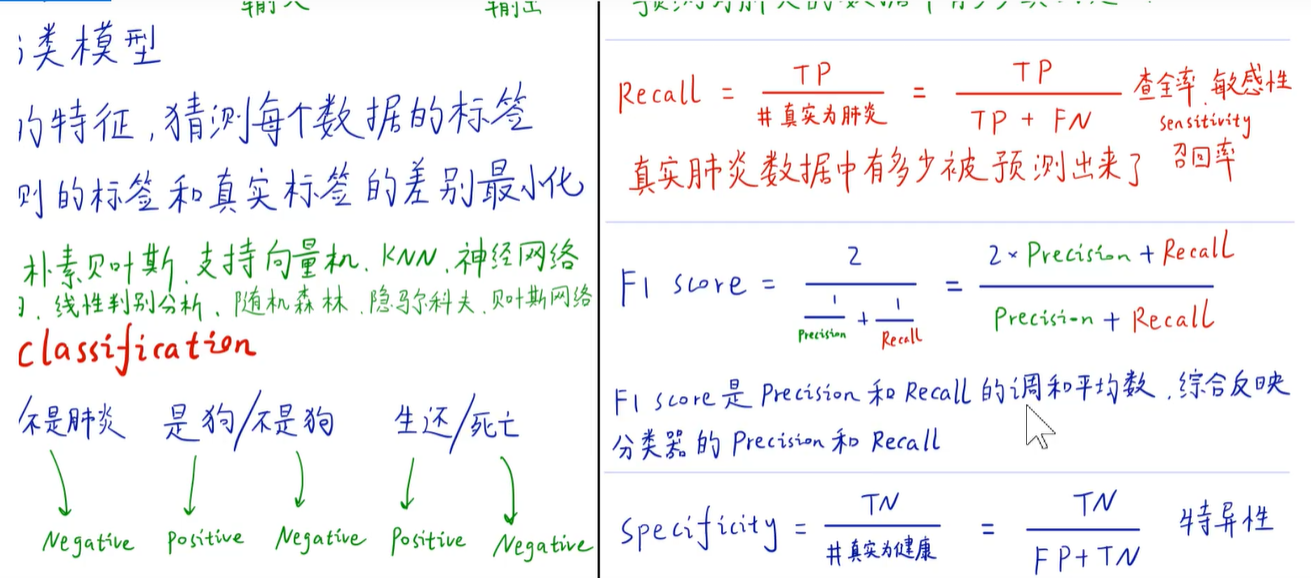 输入 输出
类模型
的特征,猜测每个数据的标签
测的标签和真实标签的差别最小化
朴素贝叶斯、支持向量机、KNN、神经网络
线性判别分析、随机森林、隐马尔科夫、贝叶斯网络
classification
不是肺炎 是狗/不是狗 生还/死亡
Negative positive Negative Positive Negative
Recall = TP / #真实为肺炎 = TP / TP + FN 查全率、敏感性
sensitivity
召回率
真实肺炎数据中有多少被预测出来了
F1 score = 2 / 1/Precision + 1/Recall = 2×Precision + Recall / Precision + Recall
F1 score是Precision和Recall的调和平均数,综合反映
分类器的Precision和Recall
Specificity = TN / #真实为健康 = TN / FP+TN 特异性